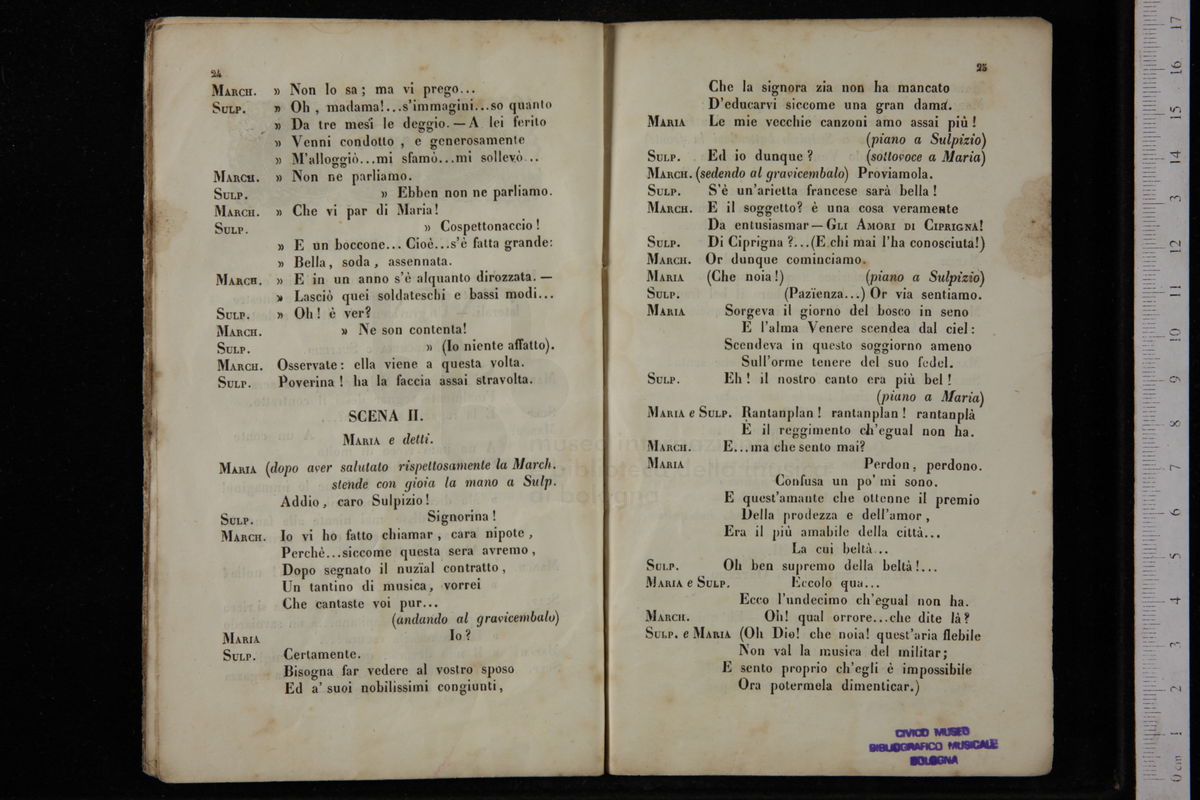 24
MARCH. » Non lo sa; ma vi prego...
SULP. » Oh, madama!...s'immagini...so quanto
» Da tre mesi le deggio.—A lei ferito
» Venni condotto, e generosamente
» M'alloggiò...mi sfamò...mi sollevò...
MARCH. » Non ne parliamo.
SULP. » Ebben non ne parliamo.
MARCH. » Che vi par di Maria!
SULP. » Cospettonaccio!
» E un boccone... Cioè...s'è fatta grande:
» Bella, soda, assennata.
MARCH. » E in un anno s'è alquanto dirozzata.—
» Lasciò quei soldateschi e bassi modi...
SULP. » Oh! è ver?
MARCH. » Ne son contenta!
SULP. » (Io niente affatto).
MARCH. Osservate: ella viene a questa volta.
SULP. Poverina! ha la faccia assai stravolta.
SCENA II.
MARIA e detti.
MARIA (dopo aver salutato rispettosamente la March.
stende con gioia la mano a Sulp.
Addio, caro Sulpizio!
SULP. Signorina!
MARCH. Io vi ho fatto chiamar, cara nipote,
Perchè...siccome questa sera avremo,
Dopo segnato il nuzïal contratto,
Un tantino di musica, vorrei
Che cantaste voi pur...
(andando al gravicembalo)
MARIA Io?
SULP. Certamente.
Bisogna far vedere al vostro sposo
Ed a' suoi nobilissimi congiunti,
25
Che la signora zia non ha mancato
D'educarvi siccome una gran dama.
MARIA Le mie vecchie canzoni amo assai più!
(piano a Sulpizio)
SULP. Ed io dunque? (sottovoce a Maria)
MARCH. (sedendo al gravicembalo) Proviamola.
SULP. S'è un'arietta francese sarà bella!
MARCH. E il soggetto? è una cosa veramente
Da entusiasmar—GLI AMORI DI CIPRIGNA!
SULP. Di Ciprigna?...(E chi mai l'ha conosciuta!)
MARCH. Or dunque cominciamo.
MARIA (Che noia!) (piano a Sulpizio)
SULP. (Pazïenza...) Or via sentiamo.
MARIA Sorgeva il giorno del bosco in seno
E l'alma Venere scendea dal ciel:
Scendeva in questo soggiorno ameno
Sull'orme tenere del suo fedel.
SULP. Eh! il nostro canto era più bel!
(piano a Maria)
MARIA e SULP. Rantanplan! rantanplan! rantanplà
È il reggimento ch'egual non ha.
MARCH. E...ma che sento mai?
MARIA Perdon, perdono.
Confusa un po' mi sono.
E quest'amante che ottenne il premio
Della prodezza e dell'amor,
Era il più amabile della città...
La cui beltà...
SULP. Oh ben supremo della beltà!...
MARIA e SULP. Eccolo qua...
Ecco l'undecimo ch'egual non ha.
MARCH. Oh! qual orrore...che dite là?
SULP. e MARIA (Oh Dio! che noia! quest'aria flebile
Non val la musica del militar;
E sento proprio ch'egli è impossibile
Ora potermela dimenticar.)
CIVICO MUSEO
BIBLIOGRAFICO MUSICALE
BOLOGNA